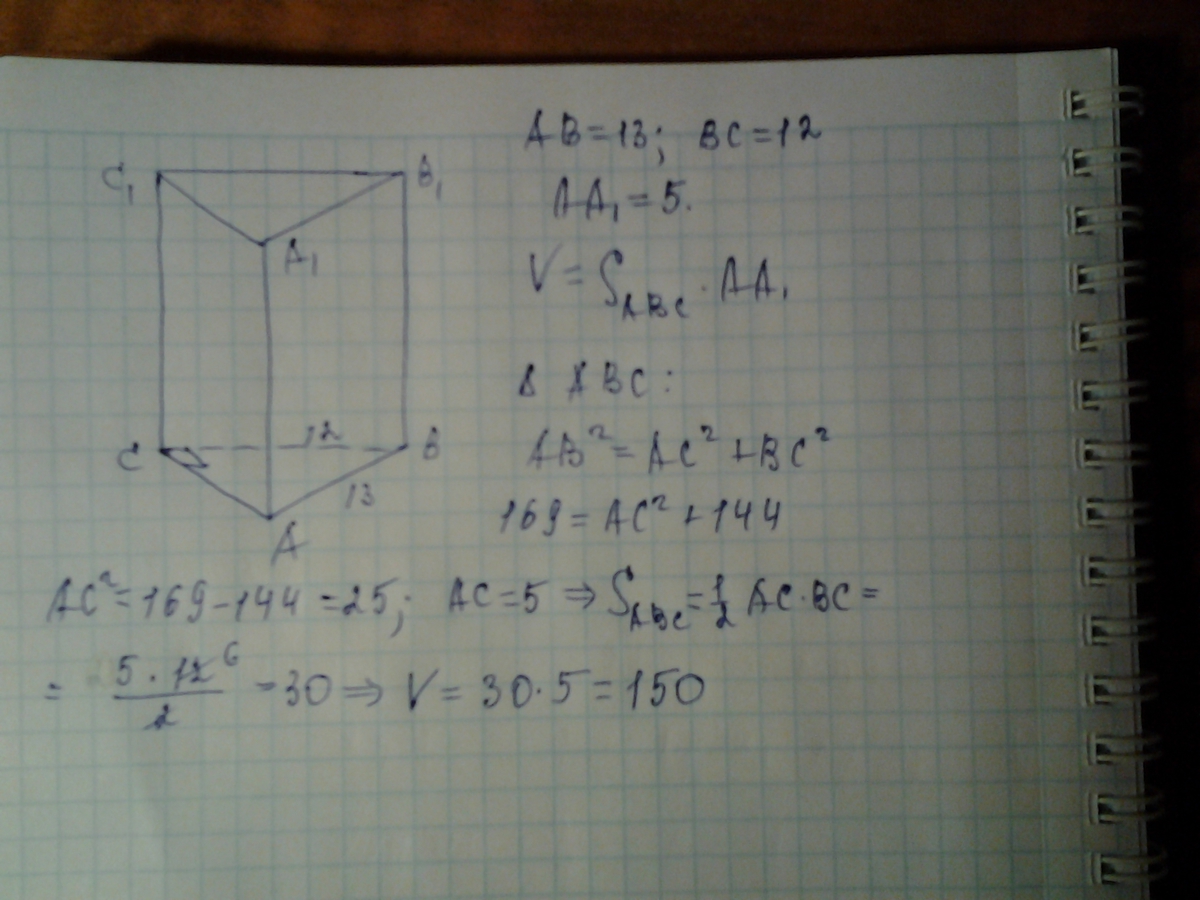 C₁ B₁
A₁
C 12 B
13
A
AB=13; BC=12
AA₁=5.
V=S_ABC·AA₁
Δ ABC:
AB²=AC²+BC²
169=AC²+144
AC²=169-144=25; AC=5 ⇒ S_ABC=1/2 AC·BC=
= 5·12⁶/2 =30 ⇒ V=30·5=150